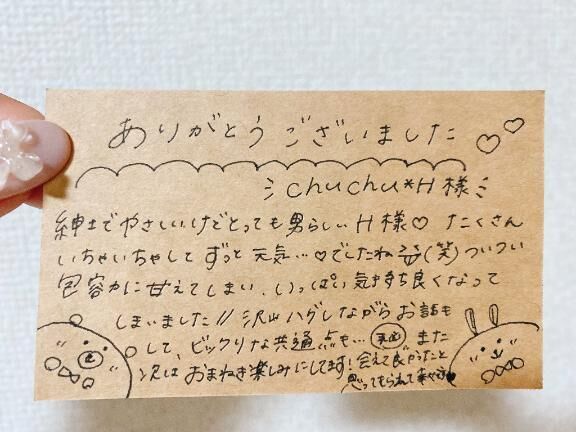 ありがとうございました♡♡
chuchu*H様
紳士でやさしいけどとっても男らしいH様♡ たくさん
いちゃいちゃしてずっと元気…♡でしたね(笑)ついつい
包容力に甘えてしまい、いっぱい気持ち良くなって
しまいました// 沢山ハグしながらお話も
して、ビックリな共通点も… また
次はおまねき楽しみにしてます!会えて良かったと
思ってもらえて幸せ♥